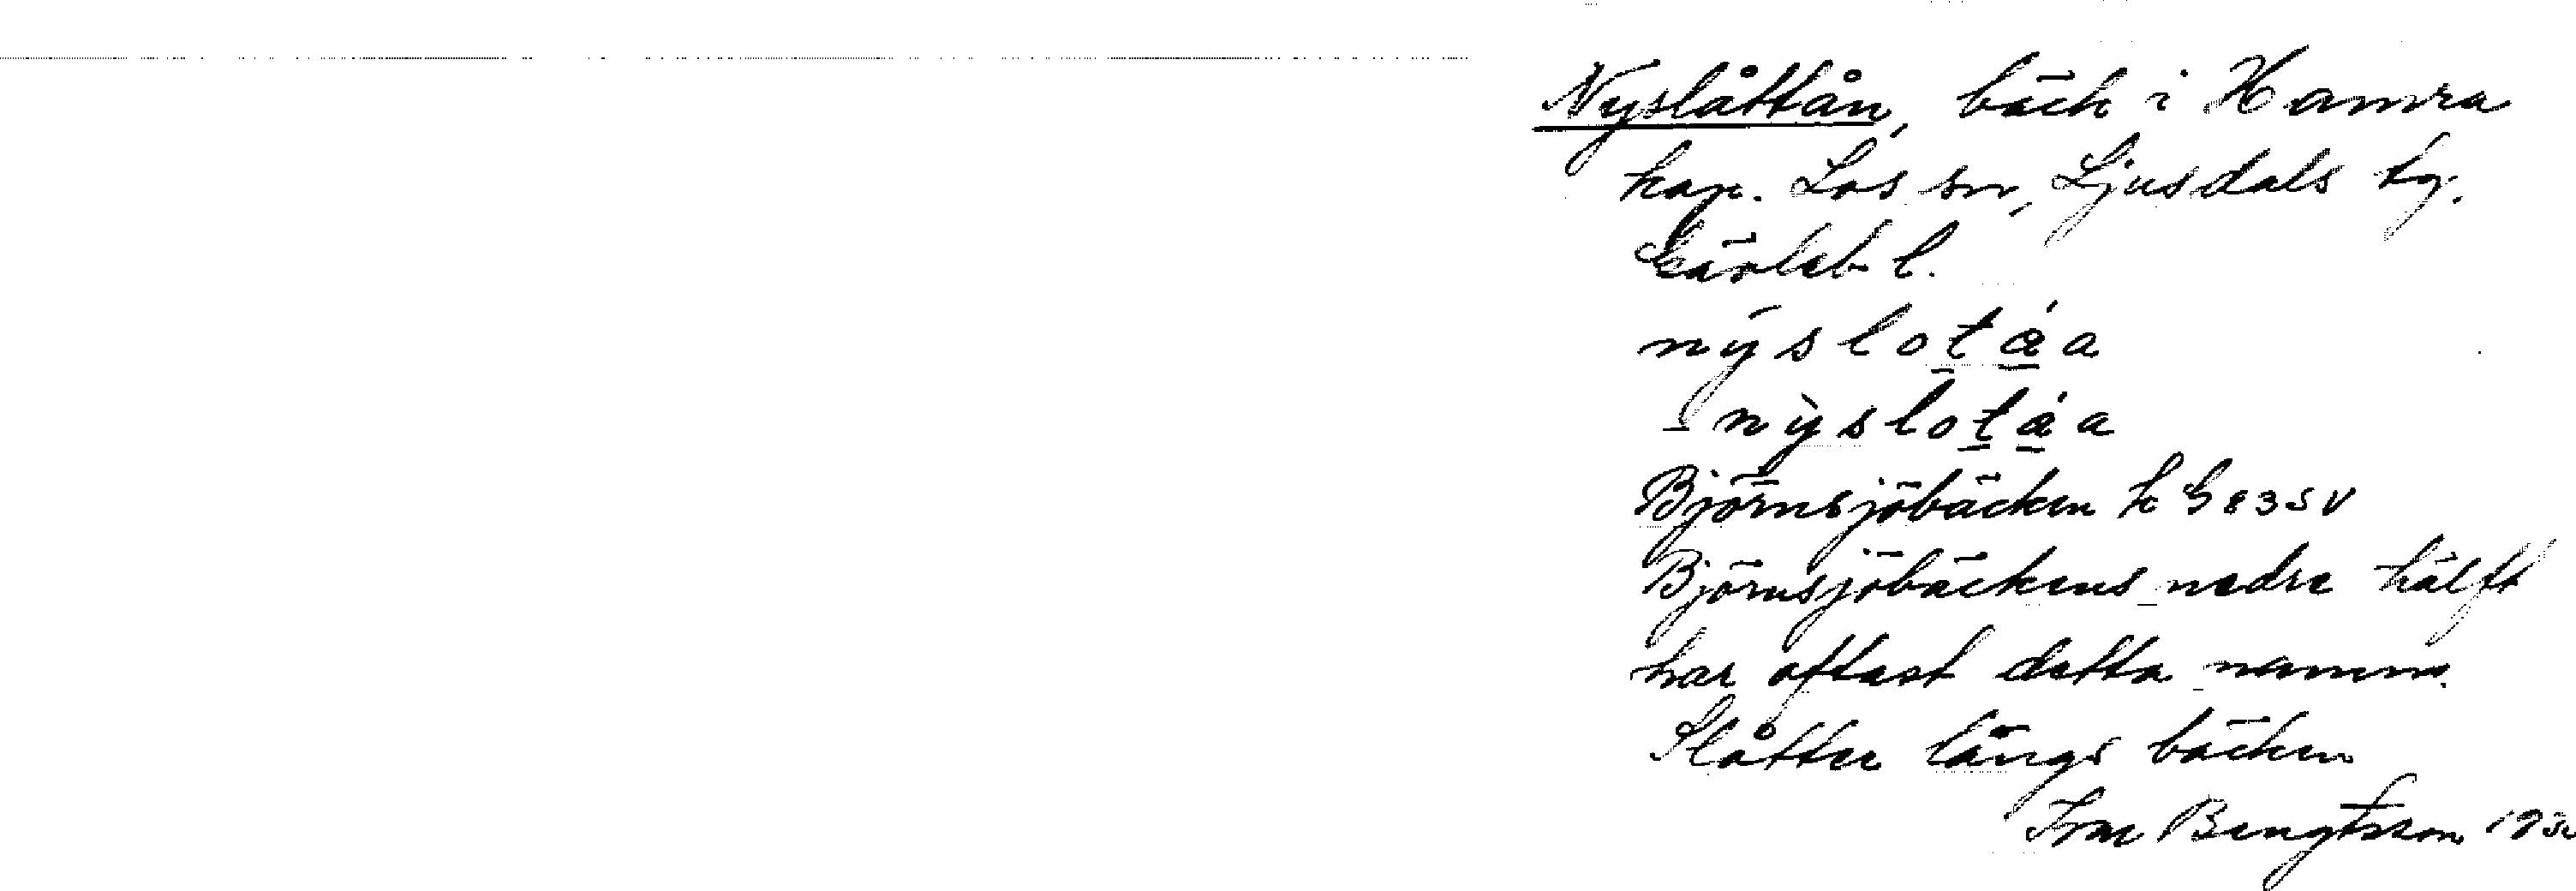 Nyslåttån, bäck i Hamra
kap. Los sn, Ljusdals tg.
Gävleb l.
nýslotåa
- nỳslotåa
Björnsjöbäcken k G 83 SV
Björnsjöbäckens nedre hälft
har oftast detta namn.
Slåtter längs bäcken
Bengtsson